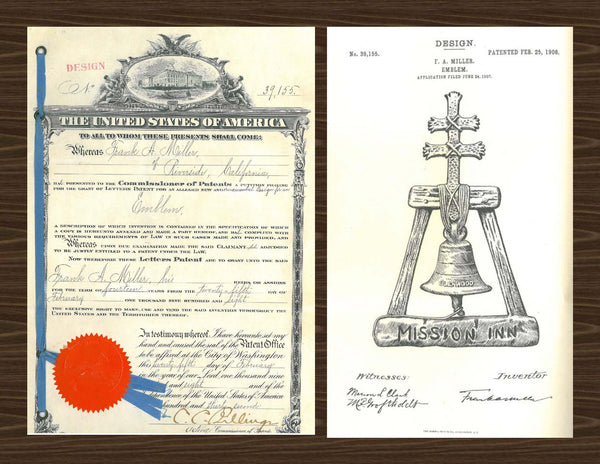 DESIGN
No 39,155.
THE UNITED STATES OF AMERICA
TO ALL TO WHOM THESE PRESENTS SHALL COME:
Whereas Frank A. Miller,
of Riverside, California,
HAS PRESENTED TO THE Commissioner of Patents A PETITION PRAYING
FOR THE GRANT OF LETTERS PATENT FOR AN ALLEGED NEW AND Ornamental Design for
Emblems,
A DESCRIPTION OF WHICH INVENTION IS CONTAINED IN THE SPECIFICATION OF WHICH
A COPY IS HEREUNTO ANNEXED AND MADE A PART HEREOF, AND HAS COMPLIED WITH
THE VARIOUS REQUIREMENTS OF LAW IN SUCH CASES MADE AND PROVIDED, AND
Whereas UPON DUE EXAMINATION MADE THE SAID CLAIMANT IS ADJUDGED
TO BE JUSTLY ENTITLED TO A PATENT UNDER THE LAW.
NOW THEREFORE THESE Letters Patent ARE TO GRANT UNTO THE SAID
Frank A. Miller, his HEIRS OR ASSIGNS
FOR THE TERM OF fourteen YEARS FROM THE twenty-fifth DAY OF
February ONE THOUSAND NINE HUNDRED AND eight
THE EXCLUSIVE RIGHT TO MAKE, USE AND VEND THE SAID INVENTION THROUGHOUT THE
UNITED STATES AND THE TERRITORIES THEREOF.
In testimony whereof I have hereunto set my
hand and caused the seal of the Patent Office
to be affixed at the City of Washington
this twenty-fifth day of February
in the year of our Lord one thousand nine
hundred and eight and of the
Independence of the United States of America
hundred and thirty-second
C. C. Billings
Acting Commissioner of Patents
DESIGN.
No. 39,155.
PATENTED FEB. 25, 1908.
F. A. MILLER.
EMBLEM.
APPLICATION FILED JUNE 24, 1907.
MISSION INN
Witnesses:
Inventor
Marion Clark